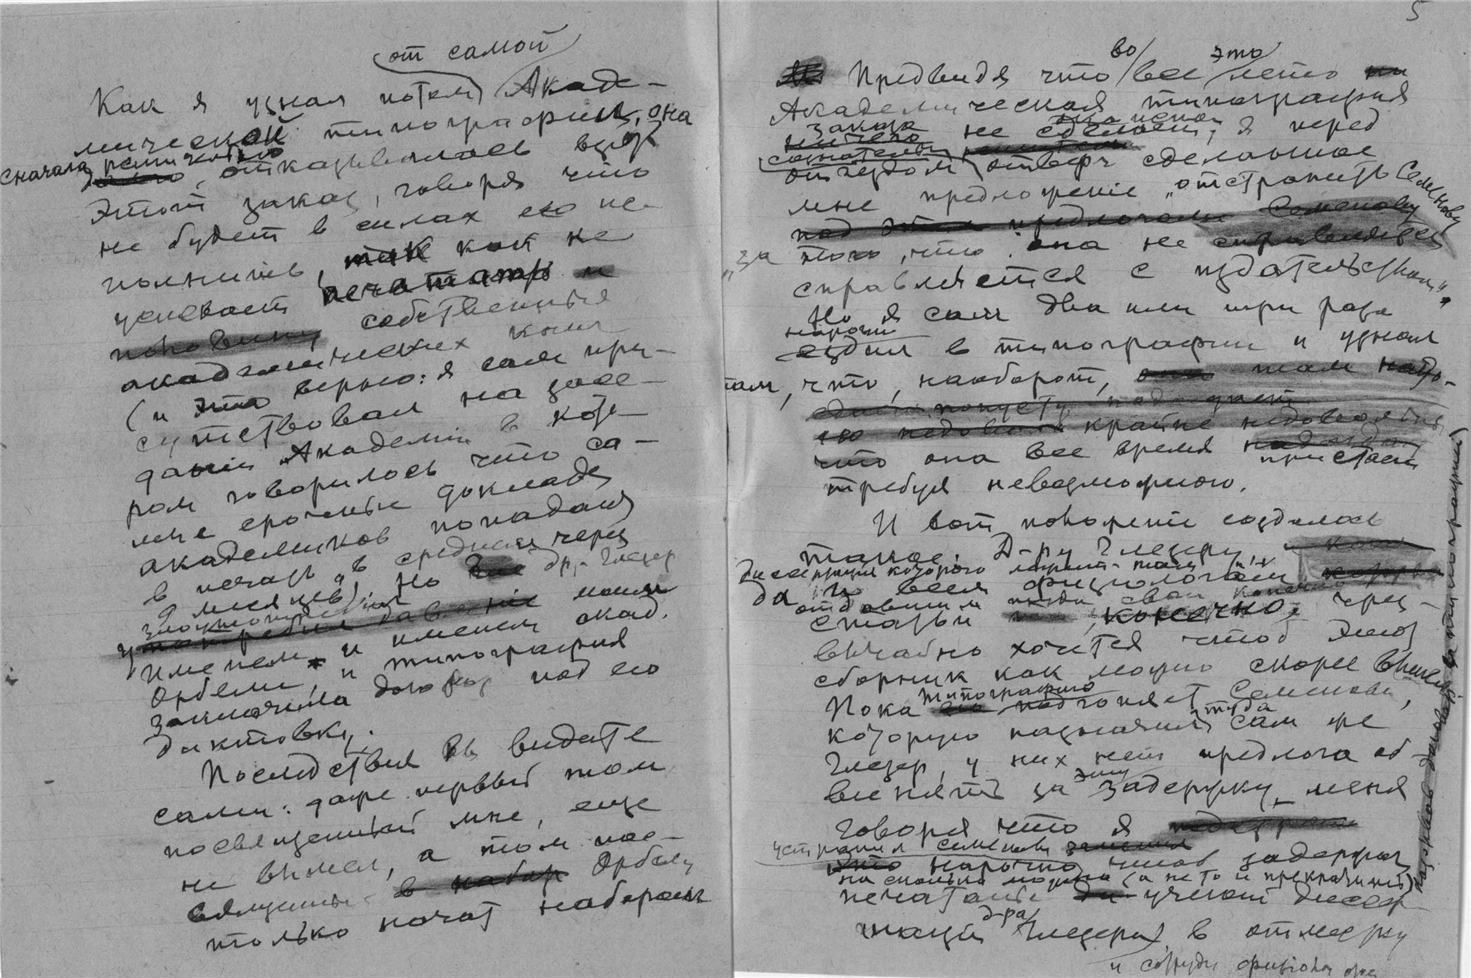 от самой
Как я узнал потом Акаде-
мической типографии, она
сначала решительно отказывалась взять
этот заказ, говоря что
не будет в силах его ис-
полнить, так как не
успевает печатать и
половину собственных
академических книг
(и это верно: я сам при-
сутствовал на засе-
дании Академии в кото-
ром говорилось что са-
мые срочные доклады
академиков попадают
в печать в среднем через
9 месяцев). Но др. Глезер
злоупотребил
моим
именем и именем акад.
Орбели, и типография
заключила договор под его
диктовку.
Последствия вы видите
сами: даже первый том
посвященный мне, еще
не вышел, а том пос-
вященный в набор Орбели
только начат набором
5
во это
Предвидя что все лето
Академическая типография
заказ
ничего не сделает, я перед
отъездом отверг сделанное
мне предложение "отстранить Семенову
под этим предлогом Семенову
"за то, что она не справляется
справляется с издательством".
Но я сам два или три раза
нарочно
ездил в типографию и узнал
там, что, наоборот, она там
крайне недовольны
что она все время пристает
требуя невозможного.
И вот положение создалось
такое. Д-ру Глезеру,
диссертация которого
да и всем физиологам
отдавшим туда свои
статьи, конечно, чрез-
вычайно хочется чтоб этот
сборник как можно скорее вышел
типографию
Пока подгоняет Семенова,
туда
которую назначил сам же
Глезер, у них нет предлога об-
эту
винять за задержку меня
говоря что я
устранил Семенову
это нарочно чтоб задержать
на сколько можно (а не то и прекратить)
печатание ученой диссер-
д-ра
тации Глезера, в отместку
и сотрудн. физиолог.